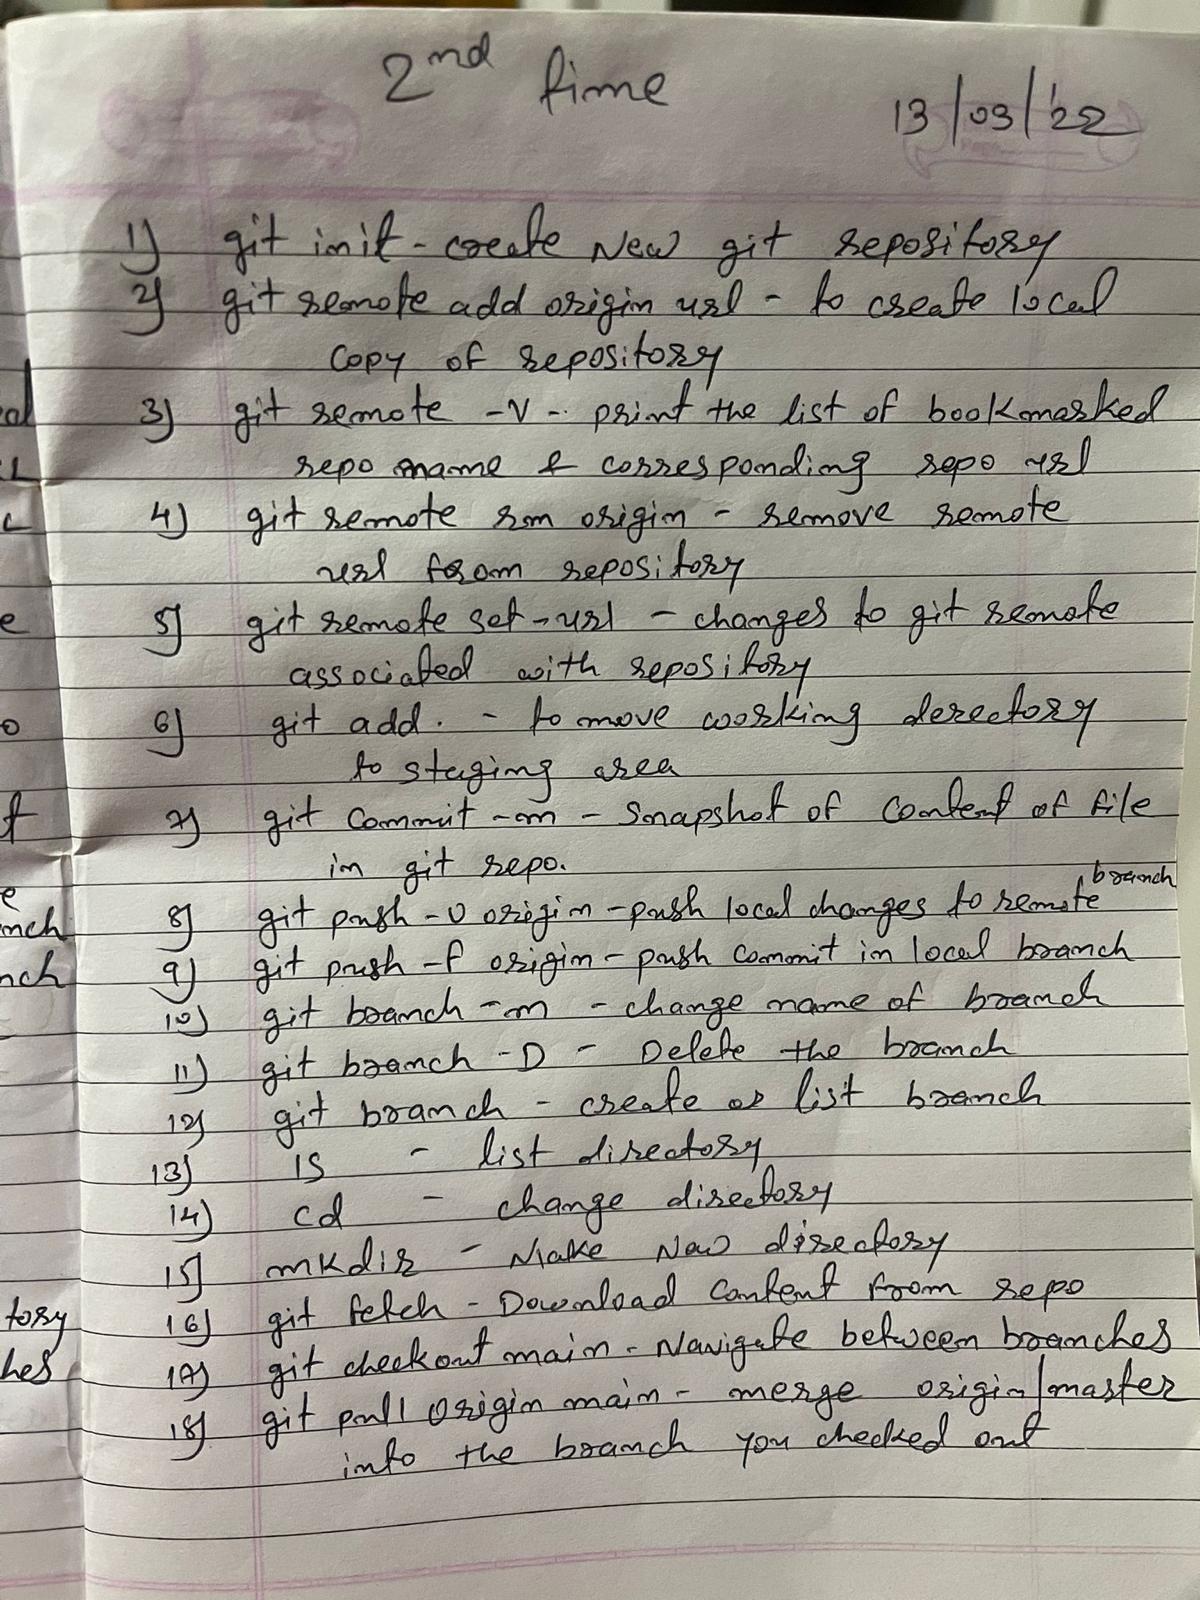 2nd time
13/03/'22
1) git init - create New git repository
2) git remote add origin url - to create local
copy of repository
3) git remote -V - print the list of bookmarked
repo name & corresponding repo url
4) git remote rm origin - remove remote
url from repository
5) git remote set-url - changes to git remote
associated with repository
6) git add . - to move working derectory
to staging area
7) git commit -m - Snapshot of content of file
in git repo.
branch
8) git push -U origin - push local changes to remote
9) git push -f origin - push commit in local branch
10) git branch -m - change name of branch
11) git branch -D - Delete the branch
12) git branch - create or list branch
13) ls - list directory
14) cd - change directory
15) mkdir - Make New directory
16) git fetch - Download content from repo
17) git checkout main - Navigate between branches
18) git pull origin main - merge origin/master
into the branch you checked out
tory
hes
nch
nch